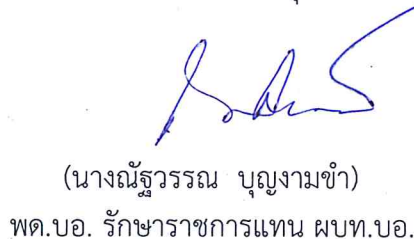 (นางณัฐวรรณ บุญงามขำ)
พด.บอ. รักษาราชการแทน ผบท.บอ.